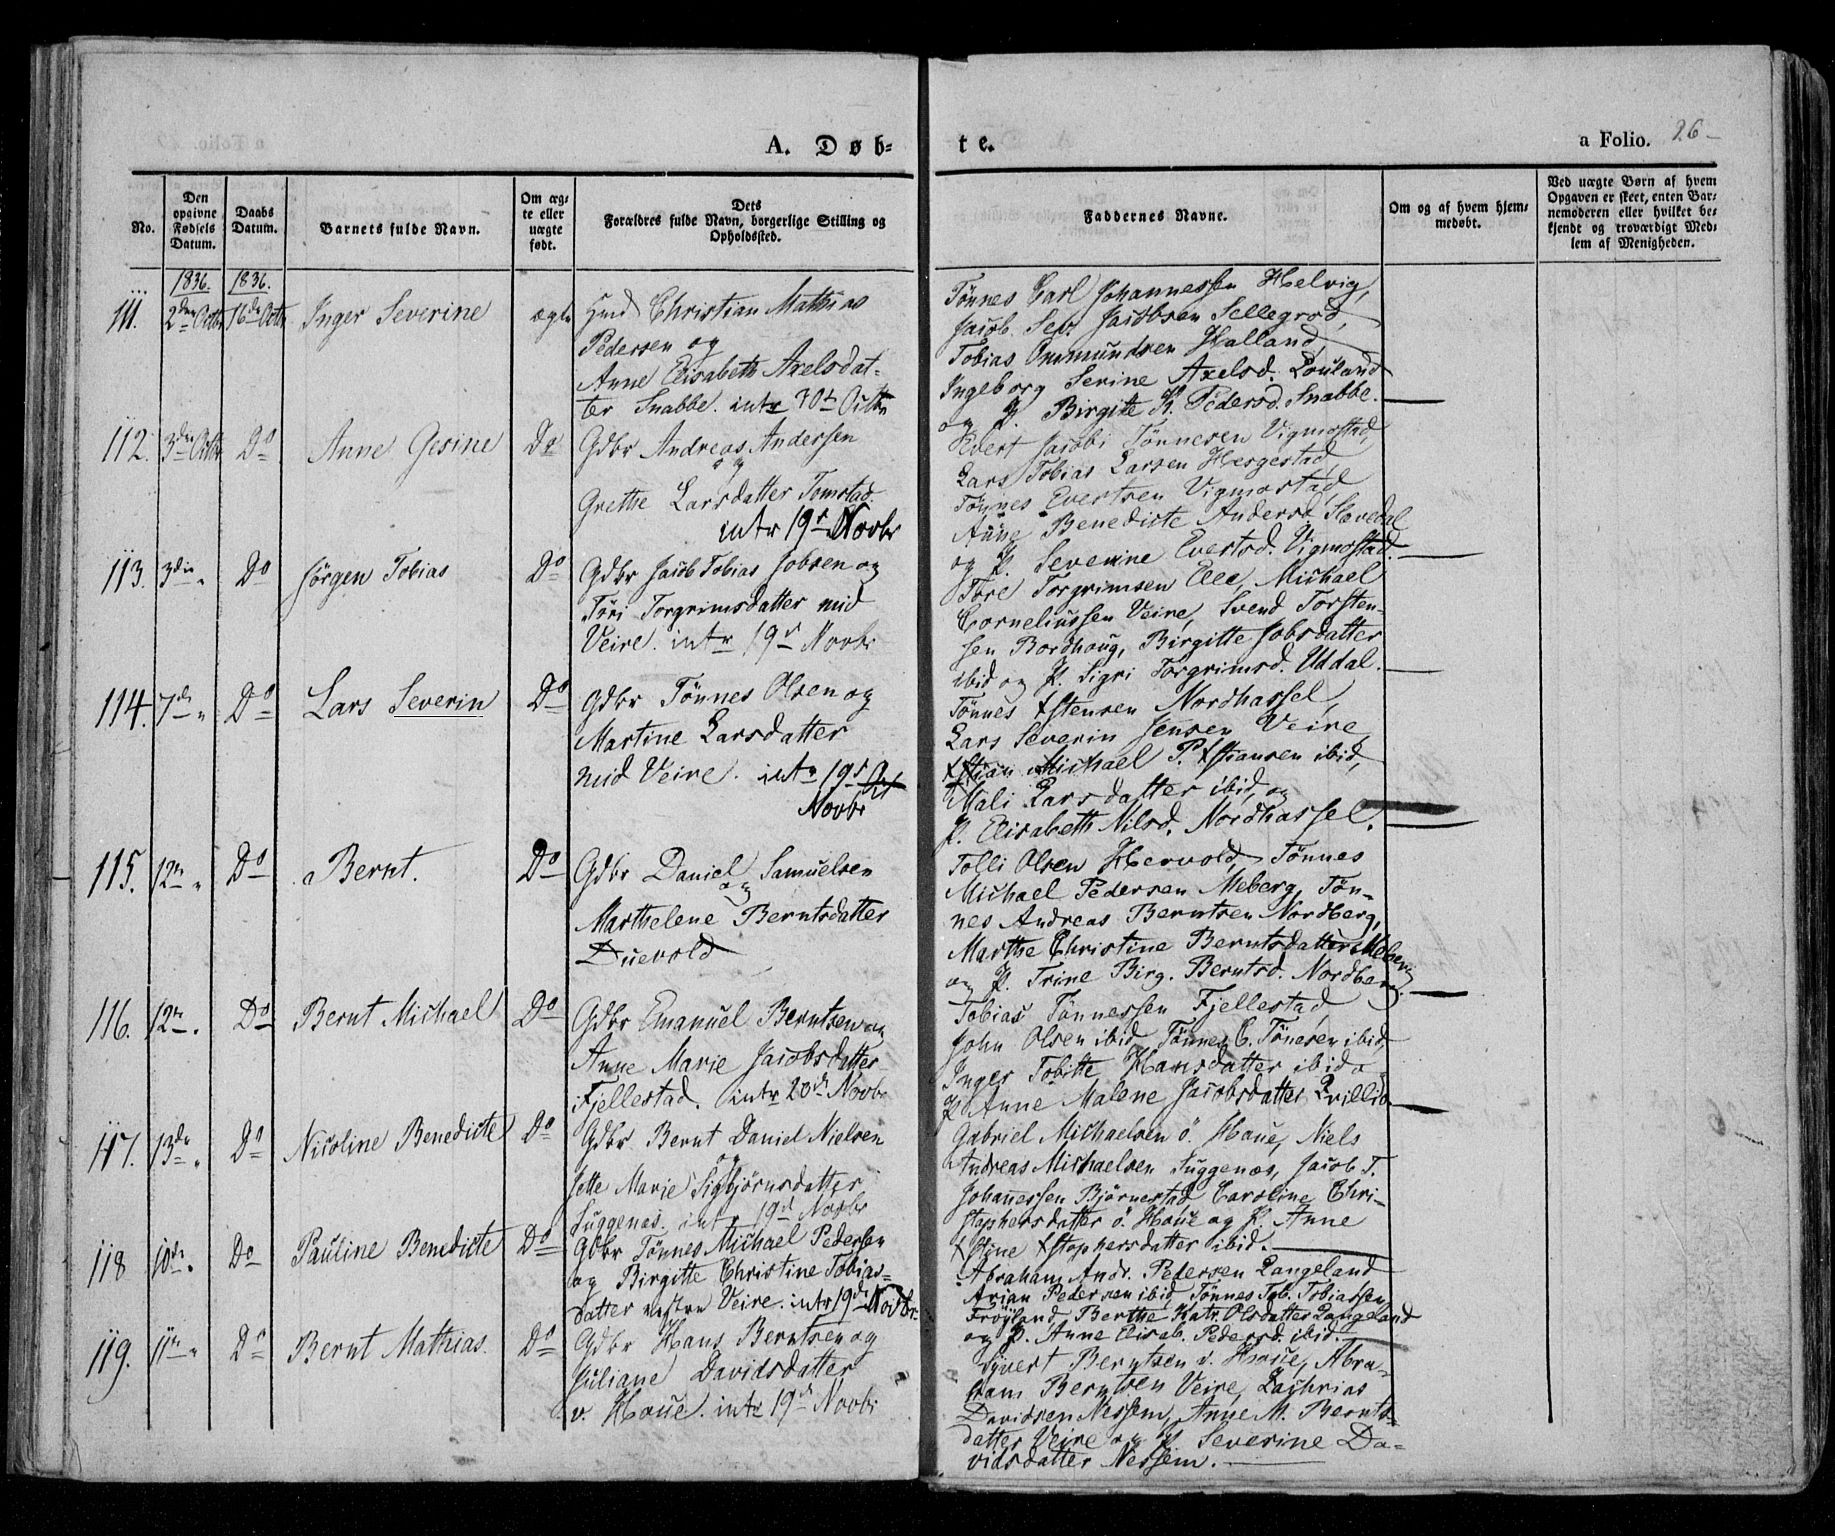 A. Døb-
te.
a Folio. 26-
No.
Den opgivne Fødsels Datum.
Daabs Datum.
Barnets fulde Navn.
Om ægte eller uægte født.
Dets Forældres fulde Navn, borgerlige Stilling og Opholdssted.
Faddernes Navne.
Om og af hvem hjemmedøbt.
Ved uægte Børn af hvem Opgaven er skeet, enten Barnemoderen eller hvilket bekjendt og troværdigt Medlem af Menigheden.
1836. 1836.
111. 2den Octbr 16de Octbr Inger Severine ægte Hmd Christian Mathias
Pedersen og
Anne Elisabeth Axelsdat-
ter Snabbe. intr 30te Octbr
Tönnes Carl Johannessen Helvig,
Jacob Sev. Jacobsen Sellegrod,
Tobias Ommundsen Halland,
Ingeborg Serine Axelsd. Louland
og P. Birgite K. Pedersd. Snabbe.
112. 3die Octbr Do Anne Gesine Do Gdbr Andreas Andersen
og
Grethe Larsdatter Tomstad.
intr 19de Novbr
Evert Jacobi Tönnesen Vigmostad,
Lars Tobias Larsen Hergestad,
Tönnes Evertsen Vigmostad
Anne Benedicte Andersd. Slevedal
og P. Severine Evertsd. Vigmostad.
113. 3die " Do Jörgen Tobias Do Gdbr Jacob Tobias Jobsen og
Siri Torgrimsdatter mid
Veire. intr 19de Novbr
Tore Torgrimsen Elle, Michael
Corneliussen Veire, Svend Torsten-
sen Bordhoug, Birgitte Jobsdatter
ibid og P. Sigri Torgrimsd. Uddal.
114. 7de " Do Lars Severin Do Gdbr Tönnes Olsen og
Martine Larsdatter
mid Veire. intr 19de Oct
Novbr
Tönnes Xstensen Nordhassel,
Lars Severin Jensen Veire,
Xstian Michael P. Xstiansen ibid,
Mali Larsdatter ibid, og
P. Elisabeth Nilsd. Nordhassel.
115. 12te " Do Bernt. Do Gdbr Daniel Samuelsen
og
Marthelene Berntsdatter
Duevold
Tolli Olsen Hervold, Tönnes
Michael Pedersen Meberg, Tön-
nes Andreas Berntsen Nordberg,
Marthe Christine Berntsdatter Meberg
og P. Trine Birg. Berntsd. Nordberg.
116. 12te " Do Bernt Michael Do Gdbr Emanuel Berntsen og
Anne Marie Jacobsdatter
Fjellestad. intr 20de Novbr
Tobias Tönnessen Fjellestad,
John Olsen ibid, Tönnes C. Tönesen ibid,
Inger Tobitte Hansdatter ibid o
P. Anne Malene Jacobsdatter Qvillio.
117. 13de " Do Nicoline Benedicte Do Gdbr Bernt Daniel Nielsen
og
Jette Marie Sigbjörnsdatter
Suggenæs. intr 19de Novbr
Gabriel Michaelsen ö. Houe, Niels
Andreas Michaelsen Suggenæs, Jacob T.
Johanessen Björnestad Caroline Chri-
stophersdatter ö. Houe og P. Anne
Xstine Xstophersdatter ibid.
118 10de " Do Pauline Benedicte Do Gdbr Tönnes Michael Pedersen
og Birgitte Christine Tobias-
datter vestre Veire. intr 19de Novbr.
Abraham Andr. Pedersen Langeland
Arian Pedersen ibid, Tönnes Tob. Tobiassen
Fröyland, Berthe Katr. Olsdatter Langeland
og P. Anne Elisab. Pedersd. ibid.
119. 11te " Do Bernt Mathias. Do Gdbr Hans Berntsen og
Juliane Davidsdatter
v. Houe. intr 19de Novbr
Syvert Berntsen v. Houe, Abra-
ham Berntsen Veire, Zachrias
Davidsen Nessem, Anne M. Bernts-
datter Veire og P. Severine Da-
vidsdatter Nessem.